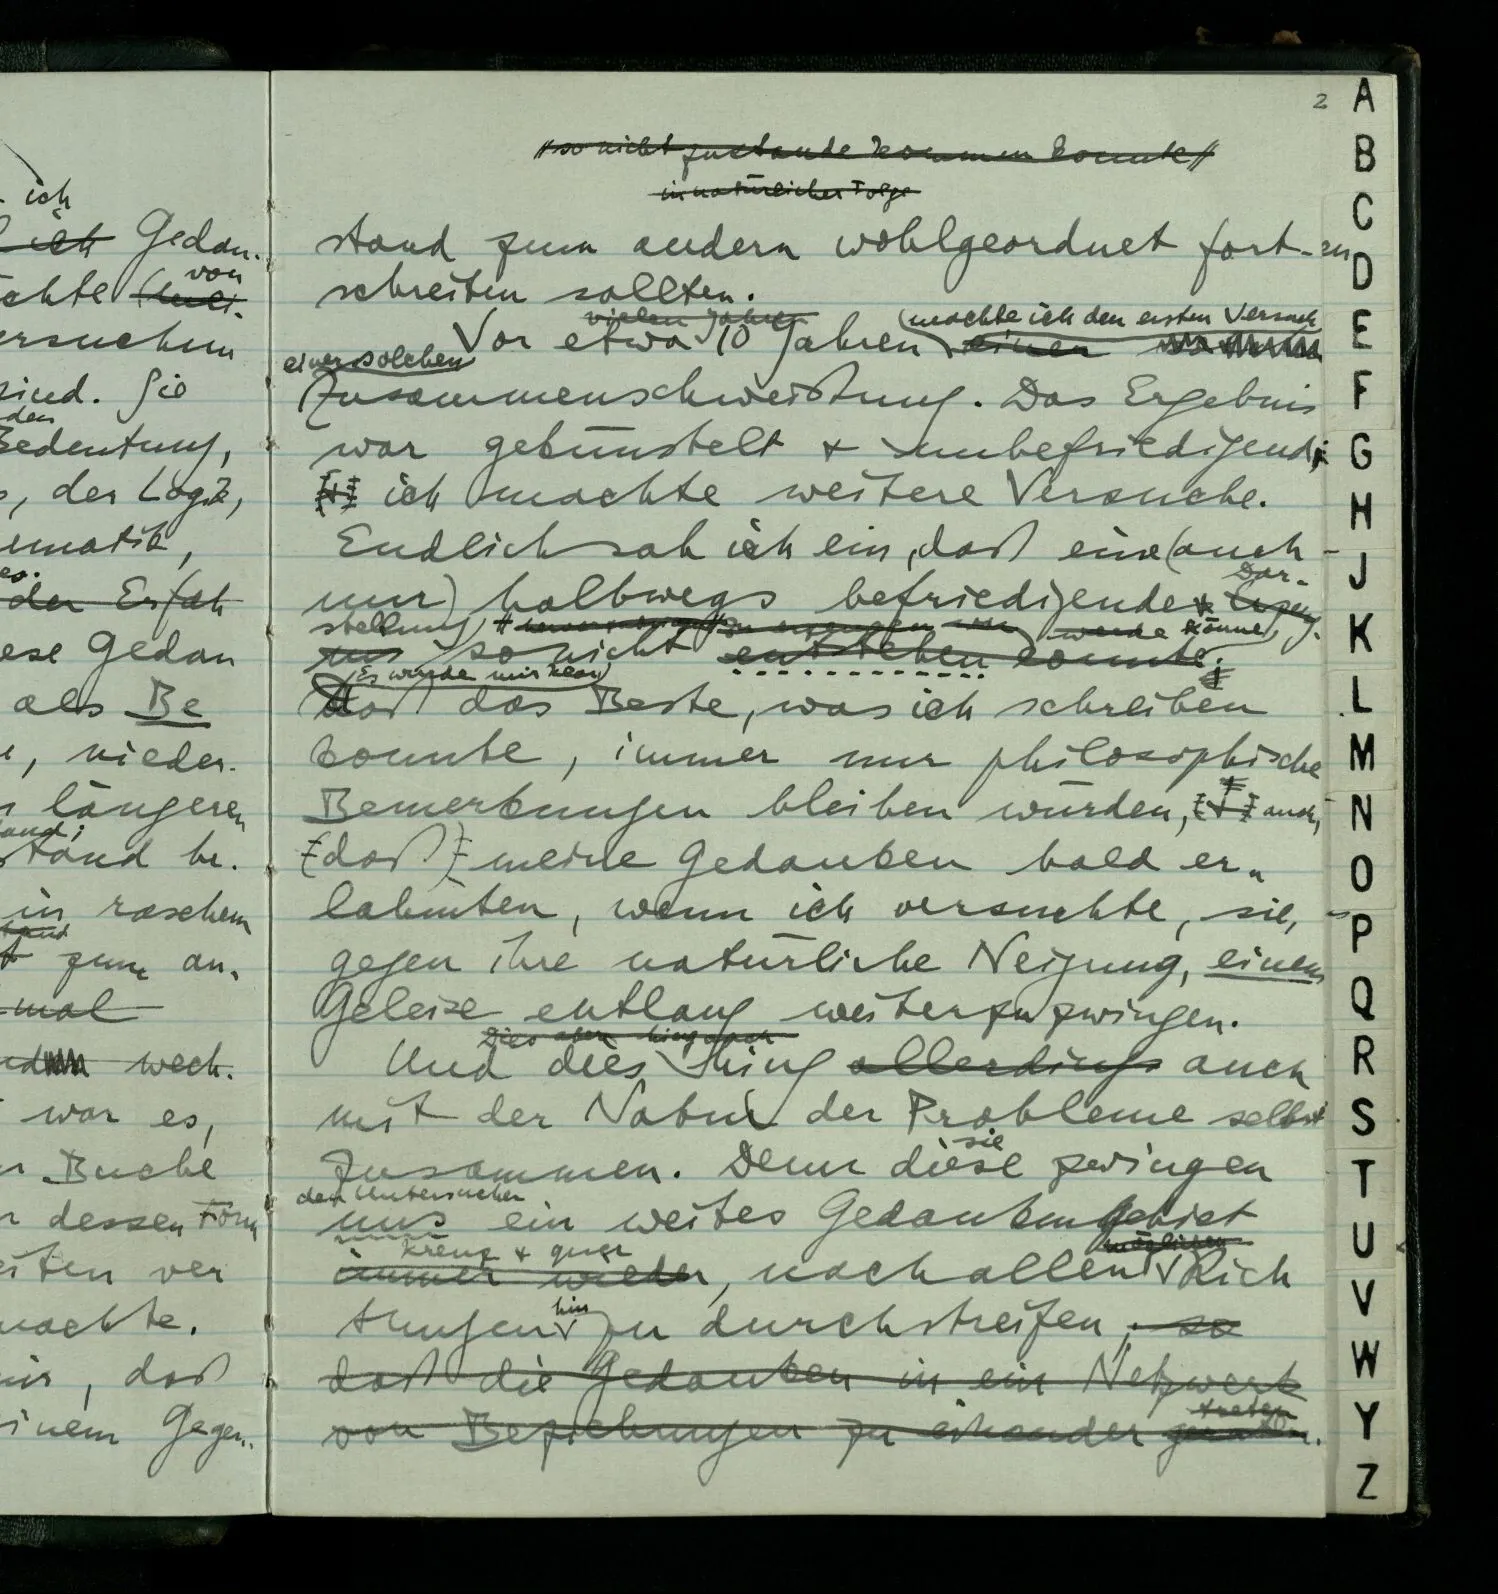 ich
ich Gedan-
von
chte
ersuchen
sind. Sie
den
Bedeutung,
, der Logik,
ematik,
der Erfah
ese Gedan
als Be
, nieder-
längeren
stand be-
in raschem
zum an-
mal
wech-
war es,
Buche
dessen Form
ver
machte.
mir, daß
einem Gegen-
2
//so nicht zustande kommen konnte//
in natürlicher Folge
stand zum andern wohlgeordnet fort-
schreiten sollten.
vielen Jahren machte ich den ersten Versuch
Vor etwa 10 Jahren einen
einer solchen
Zusammenschweißung. Das Ergebnis
war gekünstelt & unbefriedigend;
ich machte weitere Versuche.
Endlich sah ich ein, daß eine (auch
nur) halbwegs befriedigende
Dar-
stellung zu erzeugen war werde könne,
so nicht entstehen konnte;
Es wurde mir klar
daß das Beste, was ich schreiben
konnte, immer nur philosophische
Bemerkungen bleiben würden, auch,
daß meine Gedanken bald er-
lahmten, wenn ich versuchte, sie,
gegen ihre natürliche Neigung, einem
Geleise entlang weiterzuzwingen.
Dies aber hing auch
Und dies hing allerdings auch
mit der Natur der Probleme selbst
sie
zusammen. Denn diese zwingen
den Untersucher
uns ein weites Gedankengebiet
kreuz & quer möglichen
immer wieder, nach allen Rich
hin
tungen zu durchstreifen, so
daß die Gedanken in ein Netzwerk
treten
von Beziehungen zu einander
A
B
C
D
E
F
G
H
J
K
L
M
N
O
P
Q
R
S
T
U
V
W
Y
Z